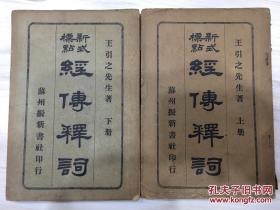 王引之先生著
上册
新式標點
經傳釋詞
蘇州振新書社印行
王引之先生著
下册
新式標點
經傳釋詞
蘇州振新書社印行